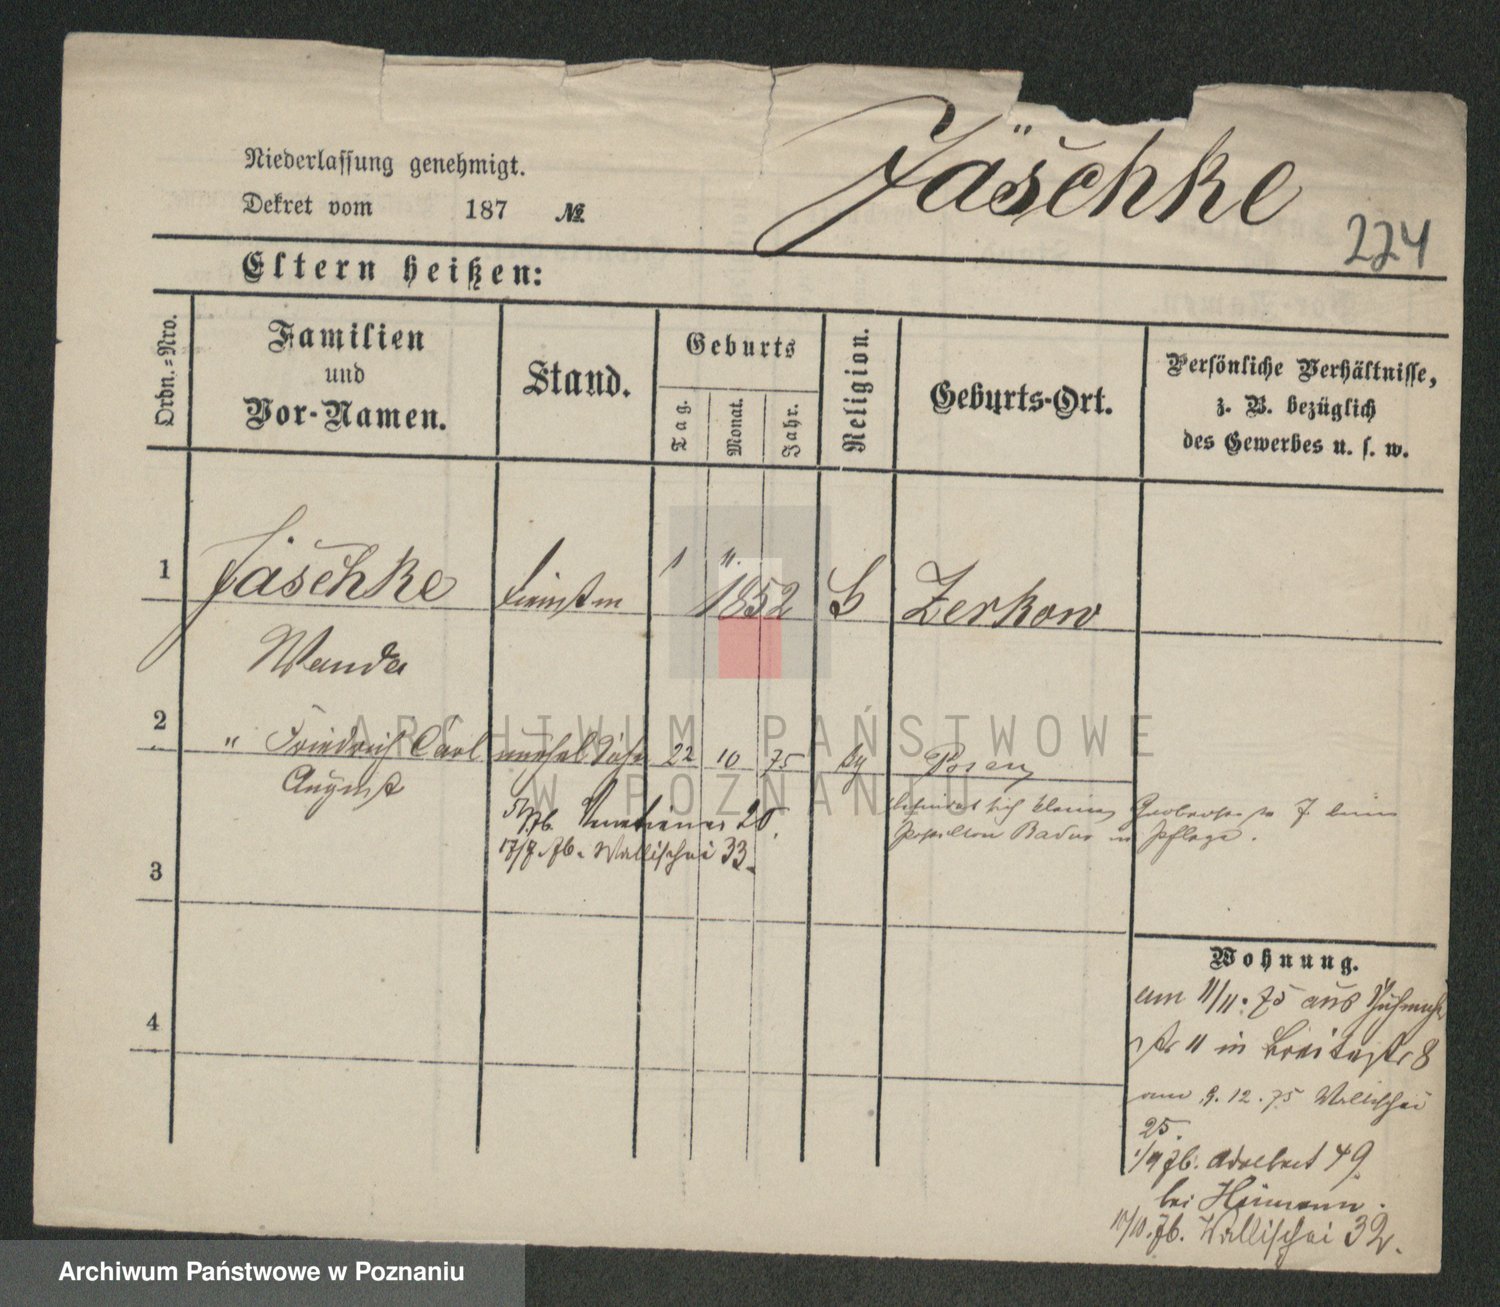 Jäschke
Niederlassung genehmigt.
Dekret vom 187 №
224
Eltern heißen:
Ordn.=Nro.
Familien
und
Vor-Namen.
Stand.
Geburts
Tag.
Monat.
Jahr.
Religion.
Geburts-Ort.
Persönliche Verhältnisse,
z. B. bezüglich
des Gewerbes u. s. w.
1 Jäschke 1 " 1852 Zerkow
Wanda
2 " Friedrich Carl 22 10 75 Posen
August
befindet sich kleine 7
in Pflege.
20.
17/7. 76. Wallischei 33.
3
4
Wohnung.
am 11/11. 75 aus
str 11 in Breitestr 8
am 9. 12. 75 Wallischei
25.
1/9 76. Adalbert 49.
bei Heimann.
10/10. 76. Wallischei 32.
ARCHIWUM PAŃSTWOWE
W POZNANIU
Archiwum Państwowe w Poznaniu